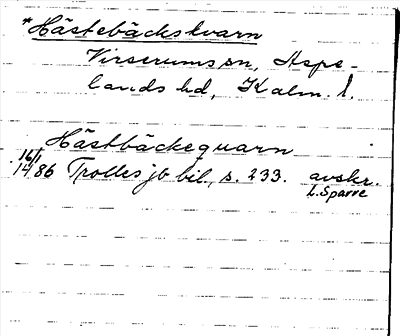 *Hästebäckskvarn
Virserums sn, Aspe-
lands hd, Kalm. l.
Hästbäckequarn
16/1
1486 Trolles jb bil., s. 233. avskr.
L. Sparre